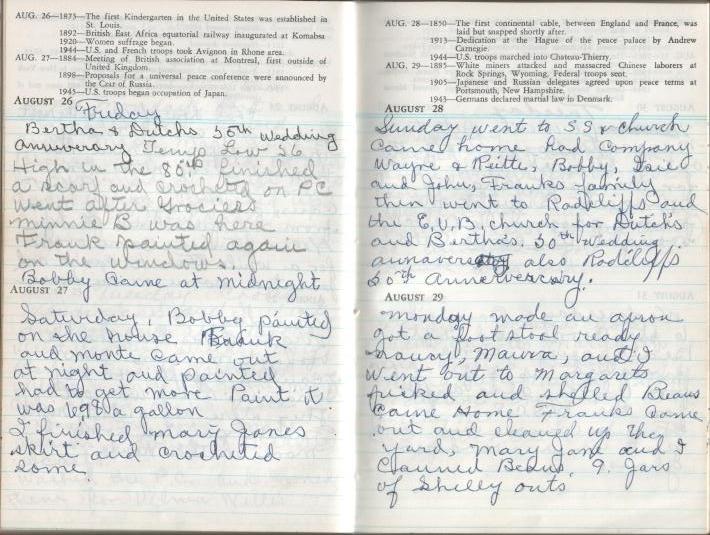 AUG. 26—1873—The first Kindergarten in the United States was established in
St. Louis.
1892—British East Africa equatorial railway inaugurated at Komabsa
1920—Women suffrage began.
1944—U.S. and French troops took Avignon in Rhone area.
AUG. 27—1884—Meeting of British association at Montreal, first outside of
United Kingdom.
1898—Proposals for a universal peace conference were announced by
the Czar of Russia.
1945—U.S. troops began occupation of Japan.
AUGUST 26
Friday
Bertha & Dutchs 50th Wedding
annuverary Temp Low 56
High in the 80th finished
a scarf and crocheted on PC
went after Grociers
Minnie B was here
Frank painted again
on the windows.
Bobby Came at midnight
AUGUST 27
Saturday, Bobby painted
on the house Frank
and monte came out
at night and painted
had to get more Paint it
was 698 a gallon
I finished Mary Janes
skirt and crocheted
some.
AUG. 28—1850—The first continental cable, between England and France, was
laid but snapped shortly after.
1913—Dedication at the Hague of the peace palace by Andrew
Carnegie.
1944—U.S. troops marched into Chateau-Thierry.
AUG. 29—1885—White miners attacked and massacred Chinese laborers at
Rock Springs, Wyoming, Federal troops sent.
1905—Japanese and Russian delegates agreed upon peace terms at
Portsmouth, New Hampshire.
1943—Germans declared martial law in Denmark.
AUGUST 28
Sunday went to S S & church
came home had Company
Wayne & Reitte, Bobby,
and John, Franks family
then went to Radcliffs and
the E.U.B. church for Dutchs
and Berthas. 50th wedding
also Radcliffs
50th Anneversary.
AUGUST 29
monday made an apron
got a foot stool ready
nancy, Maura, and I
went out to Margarets
picked and shelled Beans
Came Home Franks Came
out and cleaned up the
yard, Mary Jane and I
Canned Beans, 9. Jars
of Shelly outs